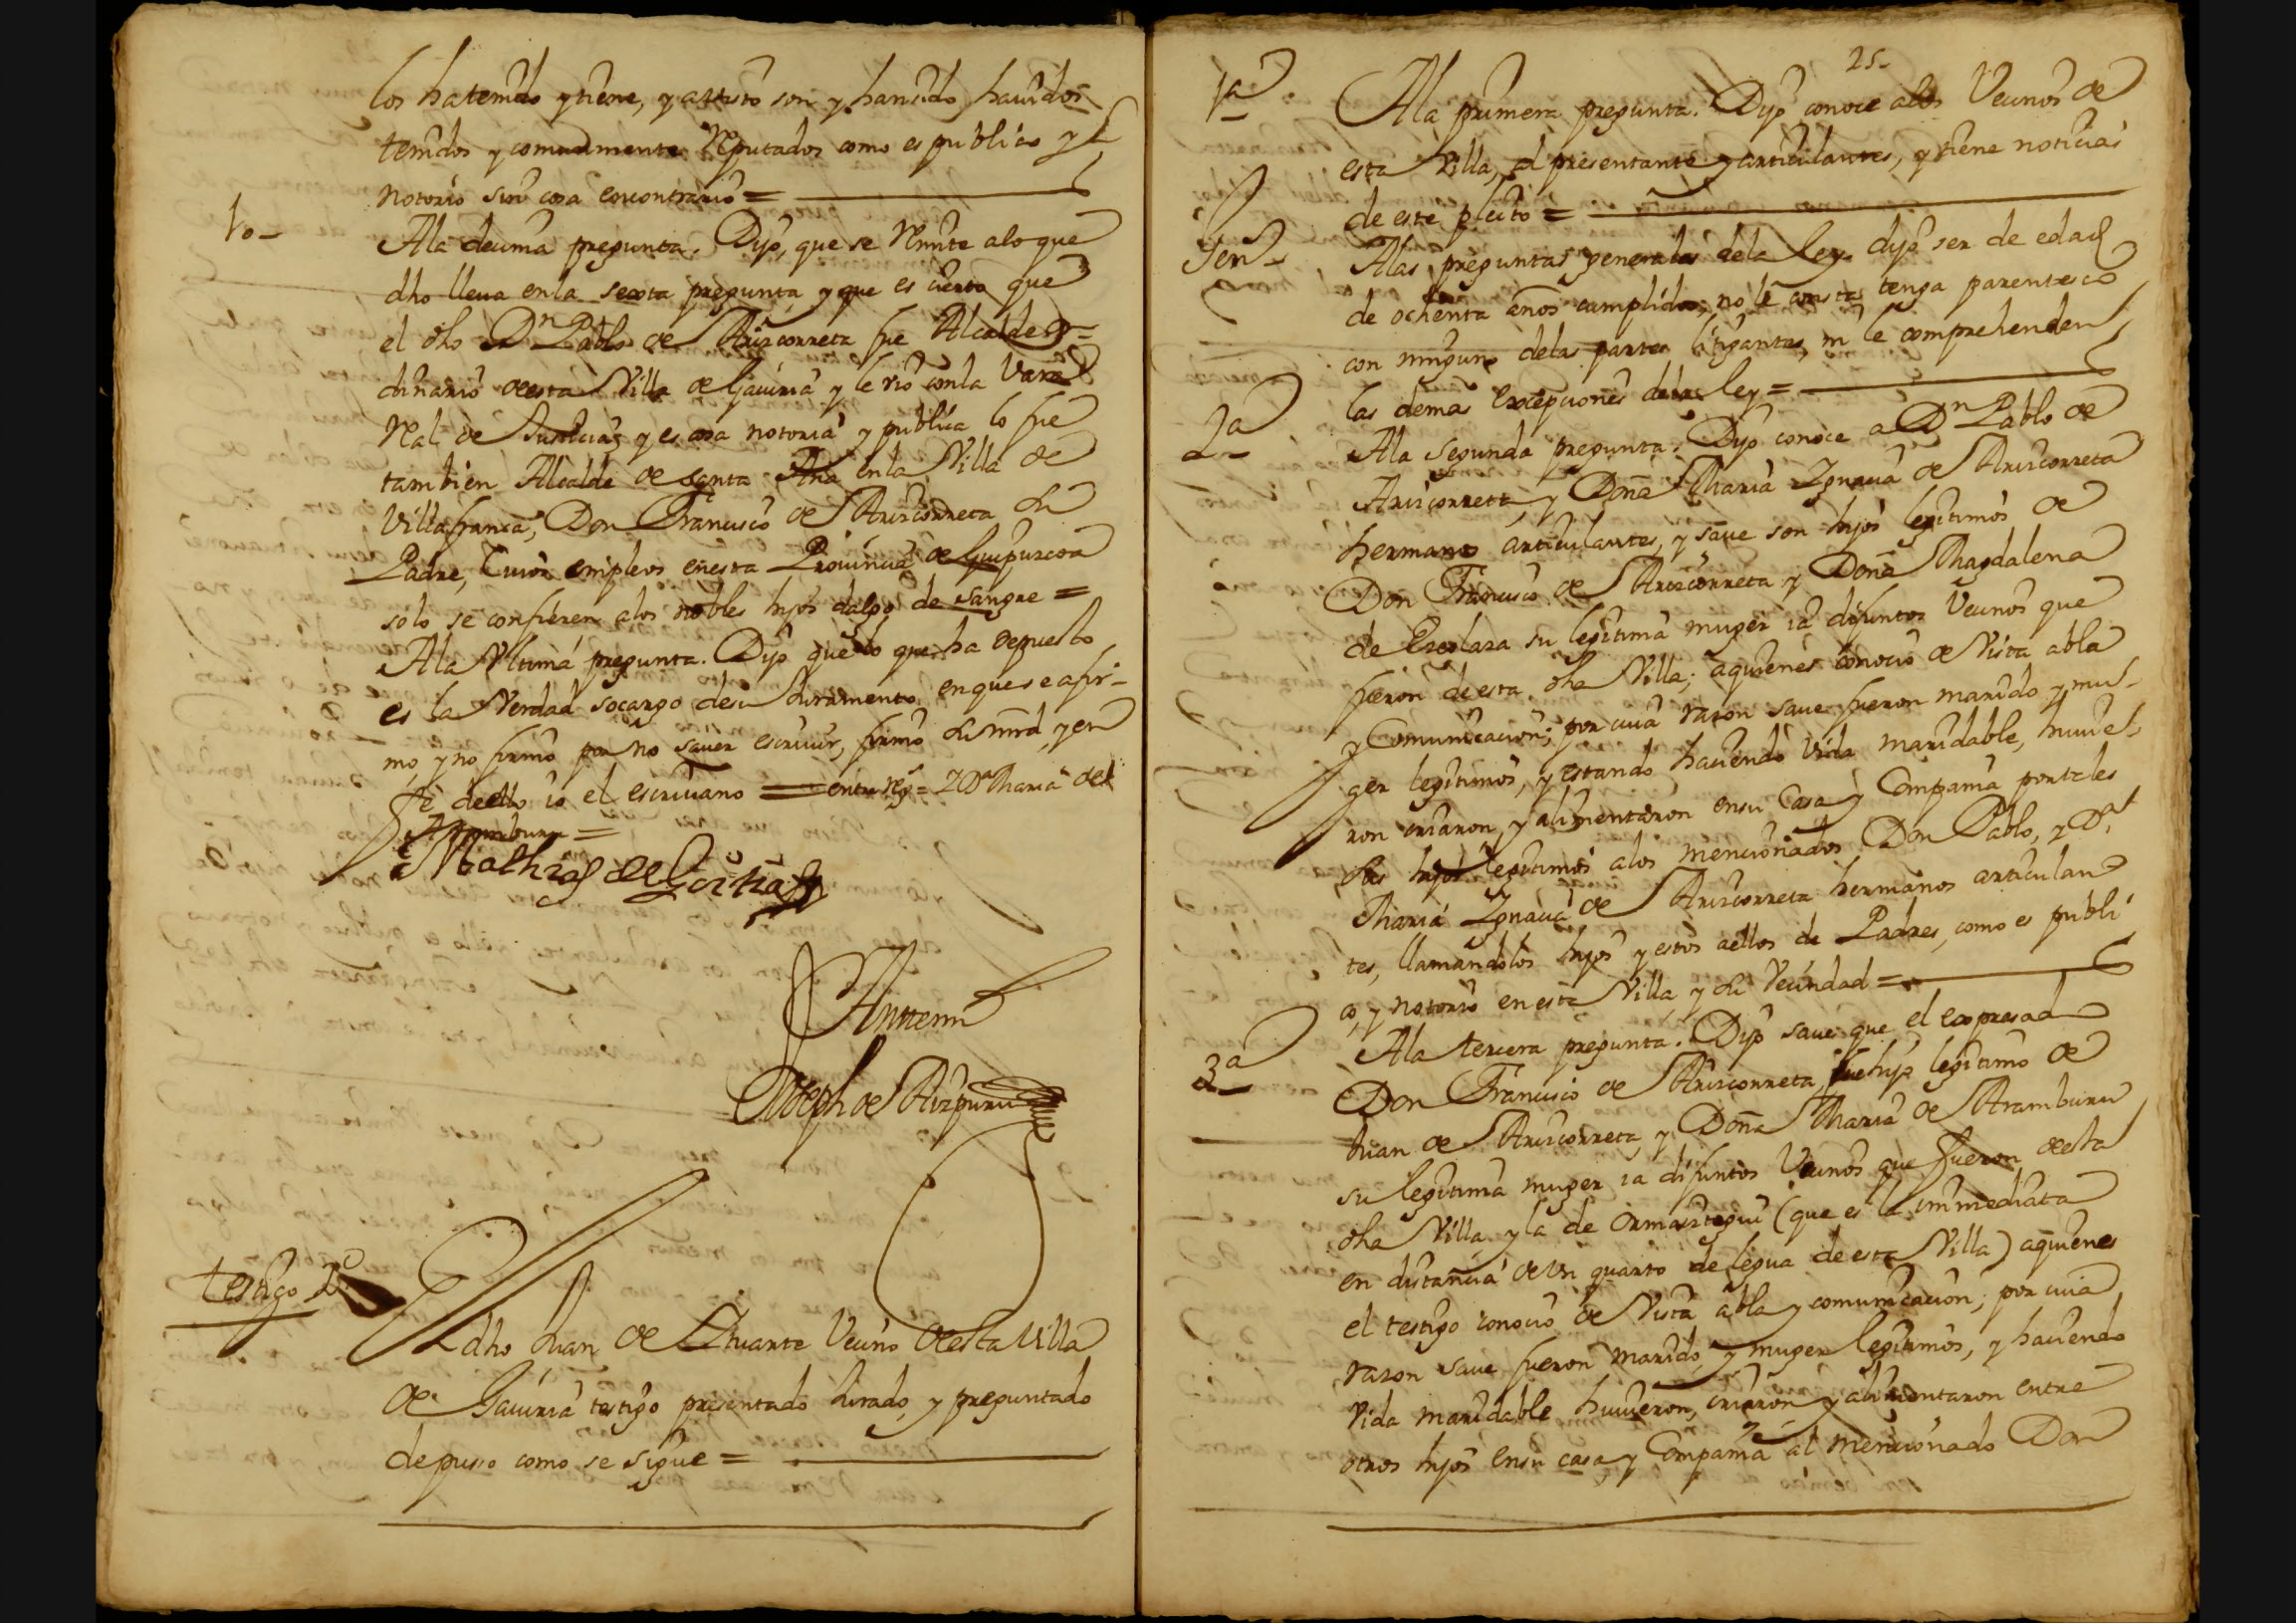 los ha tenido y tiene, y assisto son y han sido hauidos
tenidos y comunmente Reputados como es publico y
notorio sin cosa encontrario =
10-
Ala decima pregunta. Dijo, que se Remite alo que
dho lleua enla sexta pregunta y que es cierto que
el dho Dn Pablo de Ariscorreta fue Alcalde or=
dinario desta Villa de Gauiria y le vio conla Vara
Real de Justicia, y es cosa notoria y publica lo fue
tambien Alcalde de santa Ana enla Villa de
Villafranca, Don Francisco de Ariscorreta su
Padre, Cuios empleos enesta Prouincia de Guipuzcoa
solo se confieren alos nobles hijos dalgo de sangre =
Ala Vltima pregunta. Dijo que lo que ha depuesto
es la Verdad socargo desu Juramento, enque se afir-
mo, y no firmo por no sauer escriuir, firmo su mrd, y en
fe dello io el escriuano = entre Reg = 2 Da Maria de
Aramburu =
Mathias de Goitia
Antemi
Joseph de Aizpuru
testigo 2o
El dho Juan de Vecino desta Villa
de Gauiria testigo presentado Jurado, y preguntado
depuso como se sigue =
25-
1a
Ala primera pregunta. Dijo conoce alos Vecinos de
esta Villa, el presentante y articulantes, y tiene noticias
de este pleito =
Gens
Alas preguntas generales dela ley. dijo ser de edad
de ochenta años cumplidos, no le consta tenga parentesco
con ninguno delas partes litigantes, ni le comprehenden
las demas excepciones dela ley =
2a
Ala segunda pregunta. Dijo conoce a Dn Pablo de
Ariscorreta y Doña Maria Ignacia de Ariscorreta
hermanos articulantes, y saue son hijos legitimos de
Don Francisco de Ariscorreta y Doña Magdalena
de su legitima muger ia difuntos Vecinos que
fueron de esta dha Villa; aquienes conocio de Vista abla
y Comunicacion; por cuia razon saue fueron marido y mu-
ger legitimos, y estando haciendo Vida maridable, huuie-
ron criaron, y alimentaron ensu Casa y Compañia portales
sus hijos legitimos alos mencionados Don Pablo, y Da
Maria Ignacia de Ariscorreta hermanos articulan
tes, llamandolos hijos y estos aellos de Padres, como es publi
co, y notorio en esta Villa, y su Vecindad =
3a
Ala tercera pregunta. Dijo saue que el expresado
Don Francisco de Ariscorreta fue hijo legitimo de
Juan de Ariscorreta y Doña Maria de Aramburu
su legitima muger ia difuntos Vecinos que fueron desta
dha Villa y la de Ormaiztegui (que es la immediata
en distancia de Vn quarto de legua de esta Villa) aquienes
el testigo conocio de Vista, abla y comunicacion; por cuia
razon saue fueron marido, y muger legitimos, y haciendo
Vida maridable huuieron, criaron y alimentaron entre
otros hijos ensu casa y Compañia al mencionado Don